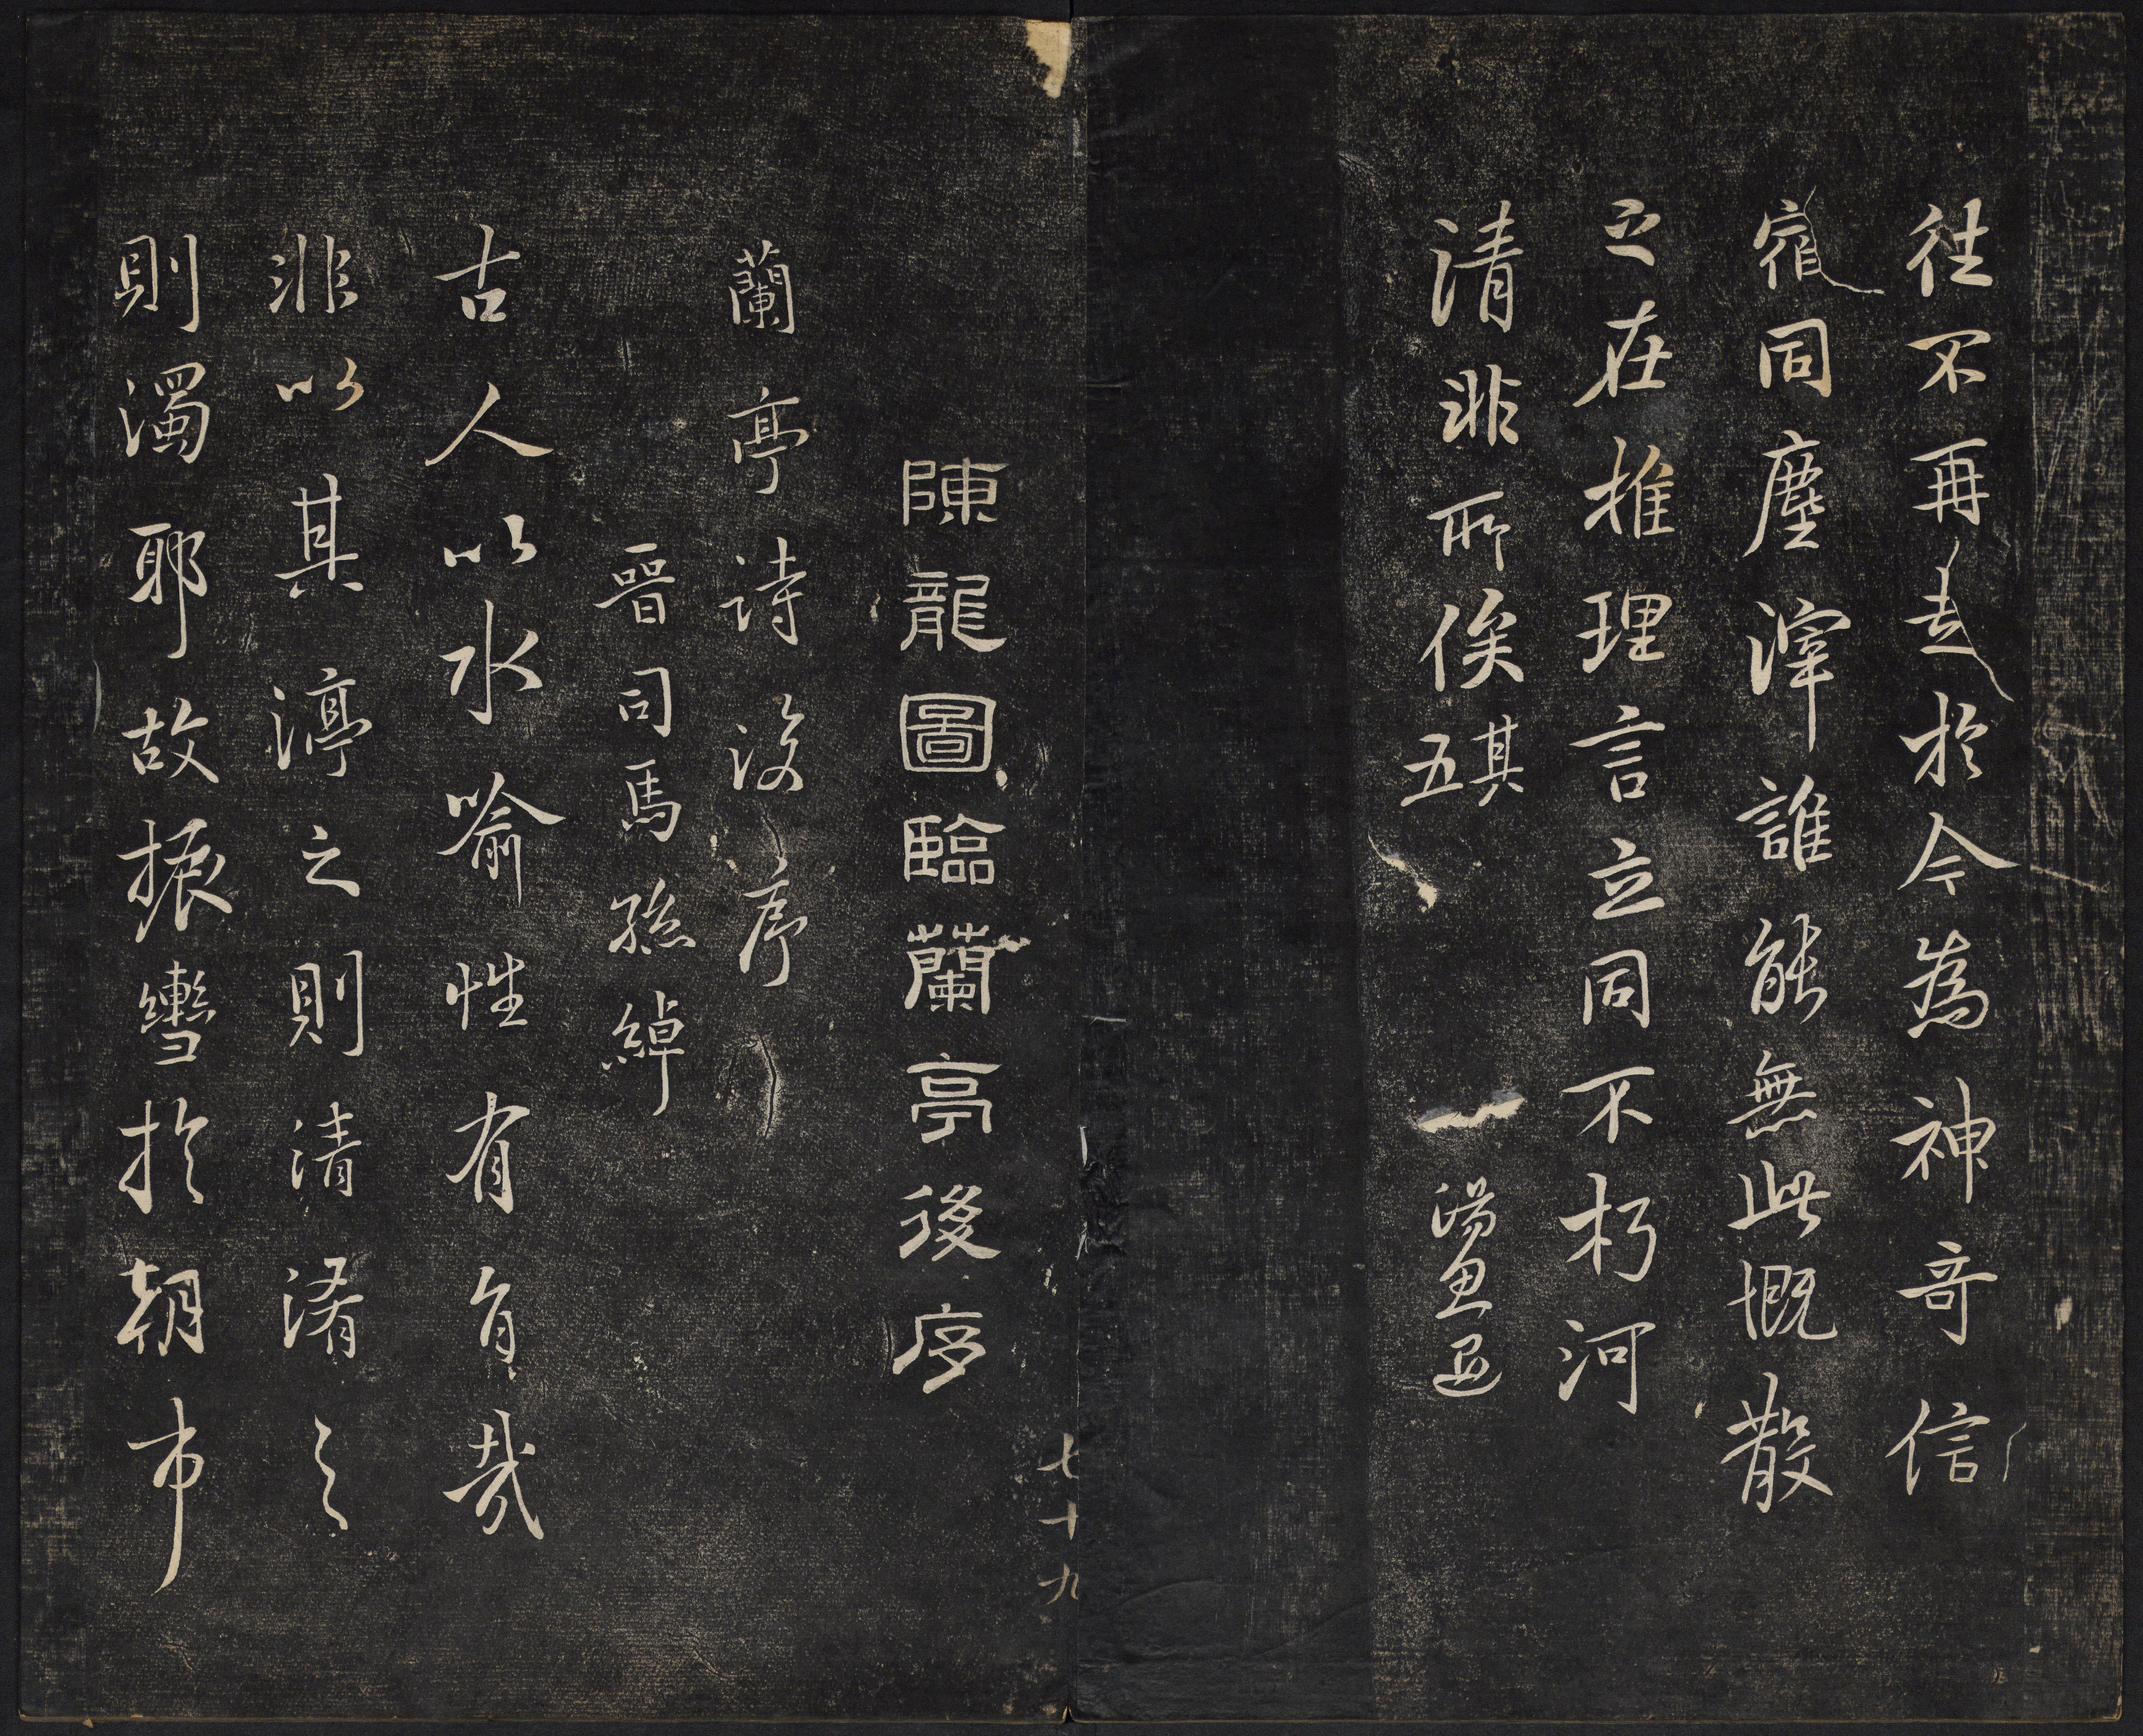 往不再去於今為神奇信
宿同塵滓誰能無此慨散
之在推理言立同不朽河
清非所俟其五
陳龍圖臨蘭亭後序
七十九
蘭亭詩後序
晉司馬孫綽
古人以水喻性有旨哉
非以其渟之則清淆之
則濁耶故振轡於朝市